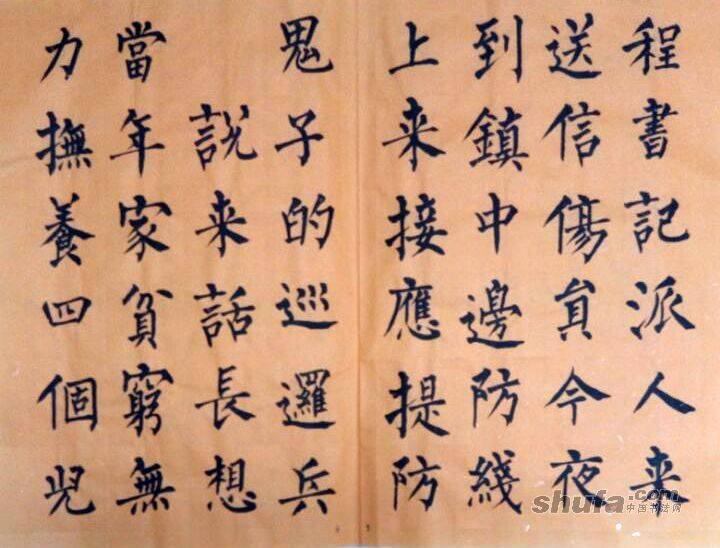 程書記派人来
送信傷員今夜
到鎮中邊防綫
上来接應提防
鬼子的巡邏兵
説来話長想
當年家貧窮無
力撫養四個児
shufa.com
中国书法网